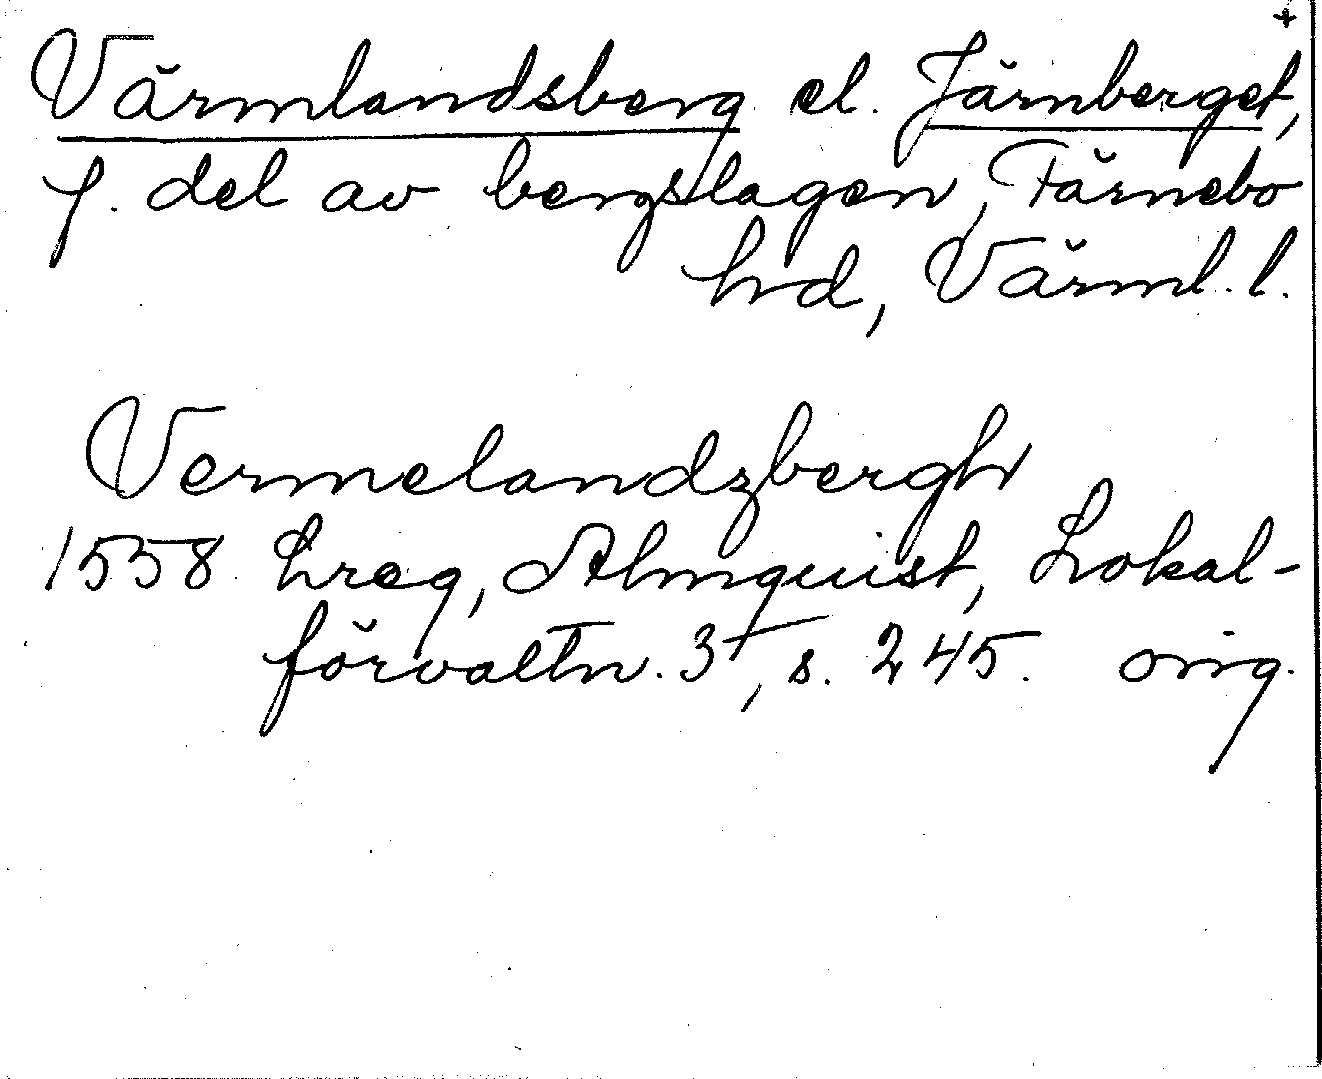 +
Värmlandsberg el. Järnberget,
f. del av bergslagen, Färnebo
hd, Värml. l.
Vermelandzbergh
1558 Lreg, Almquist, Lokal-
förvaltn. 3, s. 245. orig.